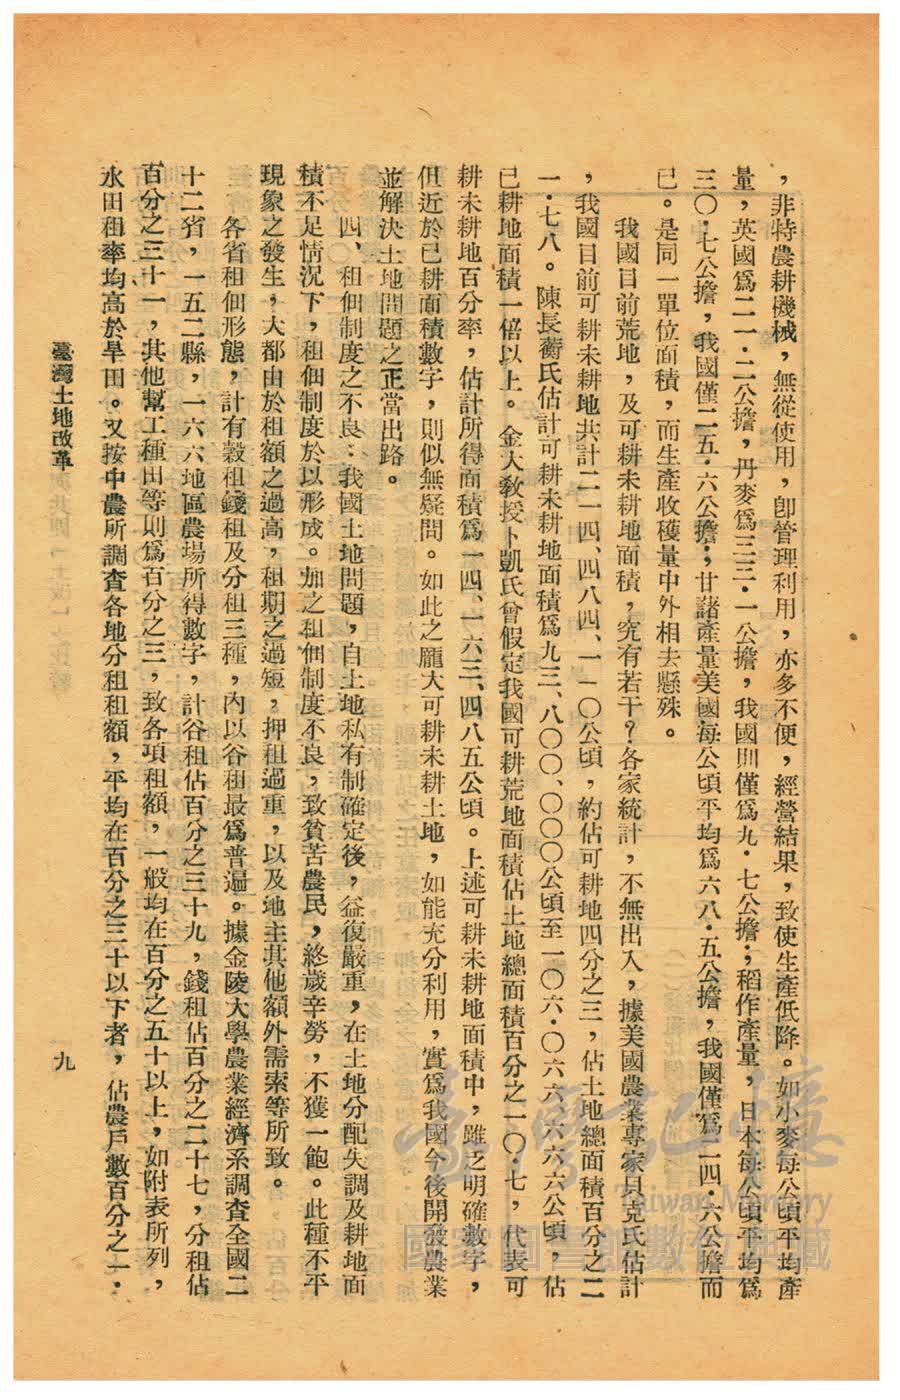 ，非特農耕機械，無從使用，卽管理利用，亦多不便，經營結果，致使生產低降。如小麥每公頃平均產
量，英國爲二一．二公擔，丹麥爲三三．一公擔，我國則僅爲九．七公擔；稻作產量，日本每公頃平均爲
三〇．七公擔，我國僅二五．六公擔；甘藷產量美國每公頃平均爲六八．五公擔，我國僅爲二四．六公擔而
已。是同一單位面積，而生產收穫量中外相去懸殊。
我國目前荒地，及可耕未耕地面積，究有若干？各家統計，不無出入，據美國農業專家貝克氏估計
，我國目前可耕未耕地共計二一四、四八四、一一〇公頃，約佔可耕地四分之三，佔土地總面積百分之二
一．七八。陳長蘅氏估計可耕未耕地面積爲九三、八〇〇、〇〇〇公頃至一〇六．〇六六、六六六公頃，佔
已耕地面積一倍以上。金大教授卜凱氏曾假定我國可耕荒地面積佔土地總面積百分之一〇．七，代表可
耕未耕地百分率，估計所得面積爲一四、一六三、四八五公頃。上述可耕未耕地面積中，雖乏明確數字，
但近於已耕面積數字，則似無疑問。如此之龐大可耕未耕土地，如能充分利用，實爲我國今後開發農業
並解決土地問題之正當出路。
四、租佃制度之不良：我國土地問題，自土地私有制確定後，益復嚴重，在土地分配失調及耕地面
積不足情況下，租佃制度於以形成。加之租佃制度不良，致貧苦農民，終歲辛勞，不獲一飽。此種不平
現象之發生，大都由於租額之過高，租期之過短，押租過重，以及地主其他額外需索等所致。
各省租佃形態，計有穀租錢租及分租三種，內以谷租最爲普遍。據金陵大學農業經濟系調查全國二
十二省，一五二縣，一六六地區農場所得數字，計谷租佔百分之三十九，錢租佔百分之二十七，分租佔
百分之三十一，其他幫工種田等則爲百分之三，致各項租額，一般均在百分之五十以上，如附表所列，
水田租率均高於旱田。又按中農所調查各地分租租額，平均在百分之三十以下者，佔農戶數百分之一．
臺灣土地改革
九
臺灣記憶
Taiwan Memory
國家圖書館數位典藏